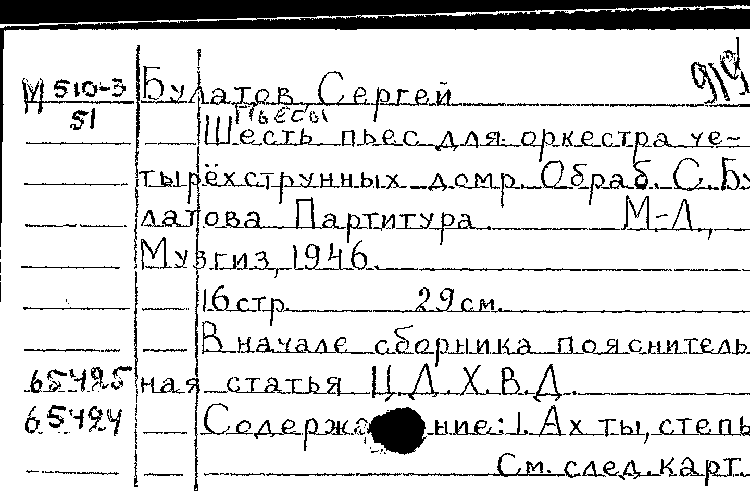 М 510-3 Булатов Сергей 919
51 Пьесы
Шесть пьес для оркестра че-
тырёхструнных домр. Обраб. С. Бу
латова Партитура. М-Л.,
Музгиз, 1946.
16 стр. 29 см.
В начале сборника пояснитель
65425 ная статья Ц.Д.Х.В.Д.
65424 Содержание: 1. Ах ты, степь
См. след. карт.